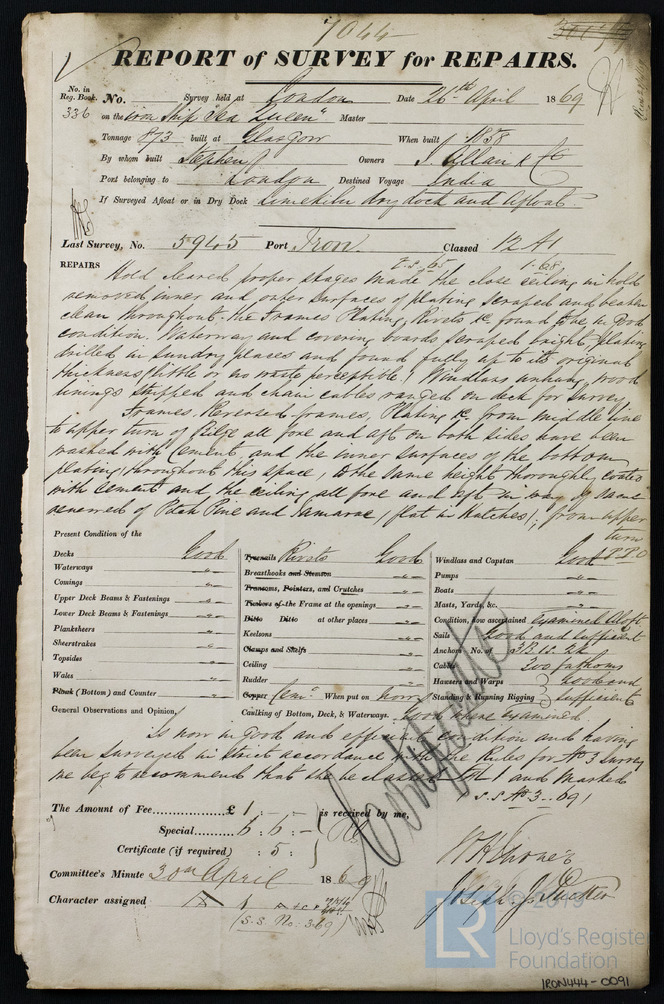 7044
REPORT of SURVEY for REPAIRS.
No. in
Reg. Book.
336
No. Survey held at London Date 26th April 1869
on the Iron Ship "Sea Queen" Master
Tonnage 873 built at Glasgow When built 1858
By whom built Stephen Owners J. Allan & Co
Port belonging to London Destined Voyage India
If Surveyed Afloat or in Dry Dock Limekiln dry dock and Afloat
Last Survey, No. 5945 Port Iron Classed 12 A1
REPAIRS
Hold cleared proper stages made the close ceiling in hold
removed inner and outer surfaces of plating scraped and beaten
clean throughout. the Frames Plating, Rivets &c. found to be in Good
condition. Waterway and covering boards scraped bright, Plating
drilled in sundry places and found fully up to its original
thickness, little or no waste perceptible. Windlass unhung, wood
linings stripped and chain cables ranged on deck for survey
Frames, Reversed frames, Plating &c. from middle line
to upper turn of Bilge all fore and aft on both sides have been
washed with Cement, and the inner surfaces of the bottom
plating throughout this space, to the same height thoroughly coated
with cement and the ceiling all fore and aft in way of same
renewed of Pitch Pine and (flat in Hatches), from upper
turn
Present Condition of the
Decks Good
Waterways "
Comings "
Upper Deck Beams & Fastenings "
Lower Deck Beams & Fastenings "
Planksheers "
Sheerstrakes "
Topsides "
Wales "
Plank (Bottom) and Counter "
Treenails Rivets Good
Breasthooks and Stemson "
Transoms, Pointers, and Crutches "
Timbers of the Frame at the openings "
Ditto Ditto at other places "
Keelsons "
Clamps and Shelfs
Ceiling "
Rudder "
Copper Cemt When put on now
Caulking of Bottom, Deck, & Waterways. Good where Examined
Windlass and Capstan Good
Pumps "
Boats "
Masts, Yards, &c. "
Condition, how ascertained Examined Aloft
Sails Good and sufficient
Anchors No. of 3B. 1S. 2K
Cables 300 fathoms
Hawsers and Warps Good and
Standing & Running Rigging sufficient
General Observations and Opinion,
Is now in Good and efficient condition and having
been surveyed in strict accordance with the Rules for No 3 Survey
we beg to recommend that she be classed 1 and Marked
S.S. No 3. 69
Certificate
The Amount of Fee £ 1 : - : -
Special 6 : 6 : -
Certificate (if required) : 5 :
is received by me,
Committee's Minute 30th April 1869
Character assigned
(S.S. No. 3. 69)
Joseph J. Tucker
© 2019
LR
Lloyd's Register
Foundation
IRON444-0091